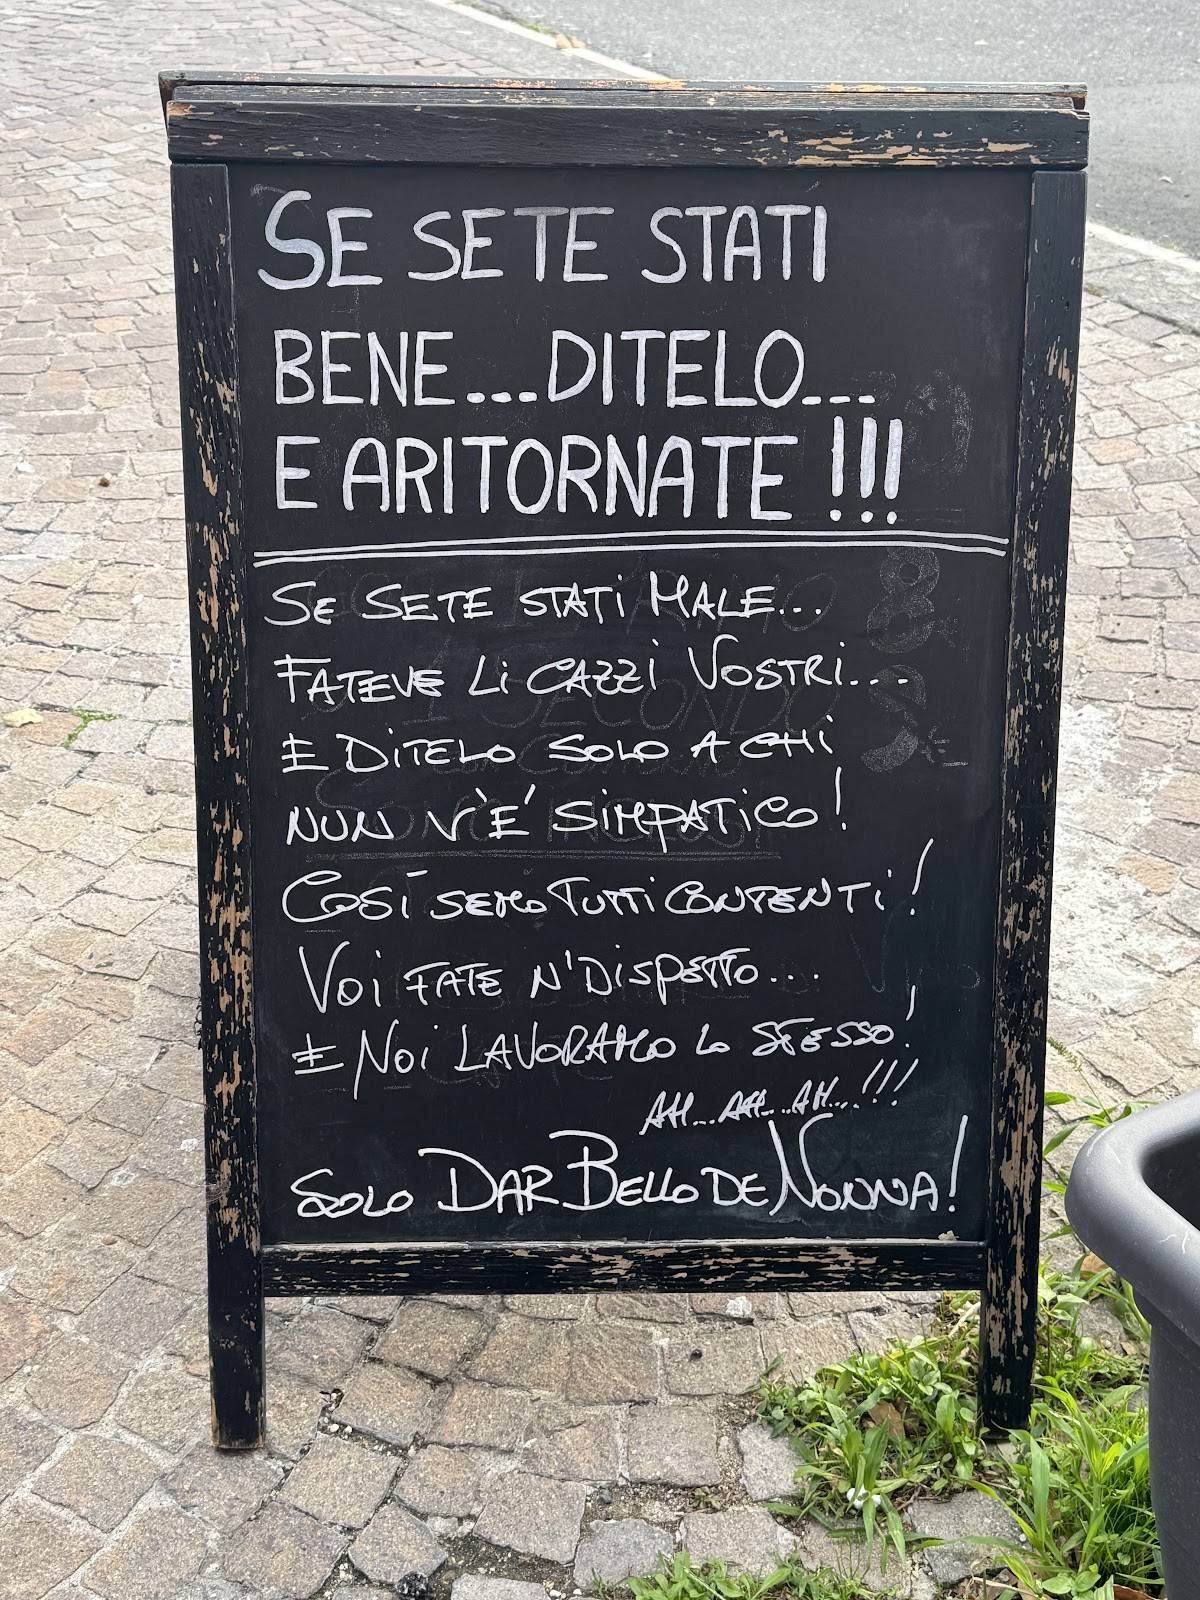 SE SETE STATI
BENE...DITELO...
E ARITORNATE !!!
SE SETE STATI MALE...
FATEVE LI CAZZI VOSTRI...
E DITELO SOLO A CHI
NUN V'È SIMPATICO!
COSÌ SEMO TUTTI CONTENTI!
VOI FATE N'DISPETTO...
E NOI LAVORAMO LO STESSO!
AH...AH...AH...!!!
SOLO DAR BELLO DE NONNA!